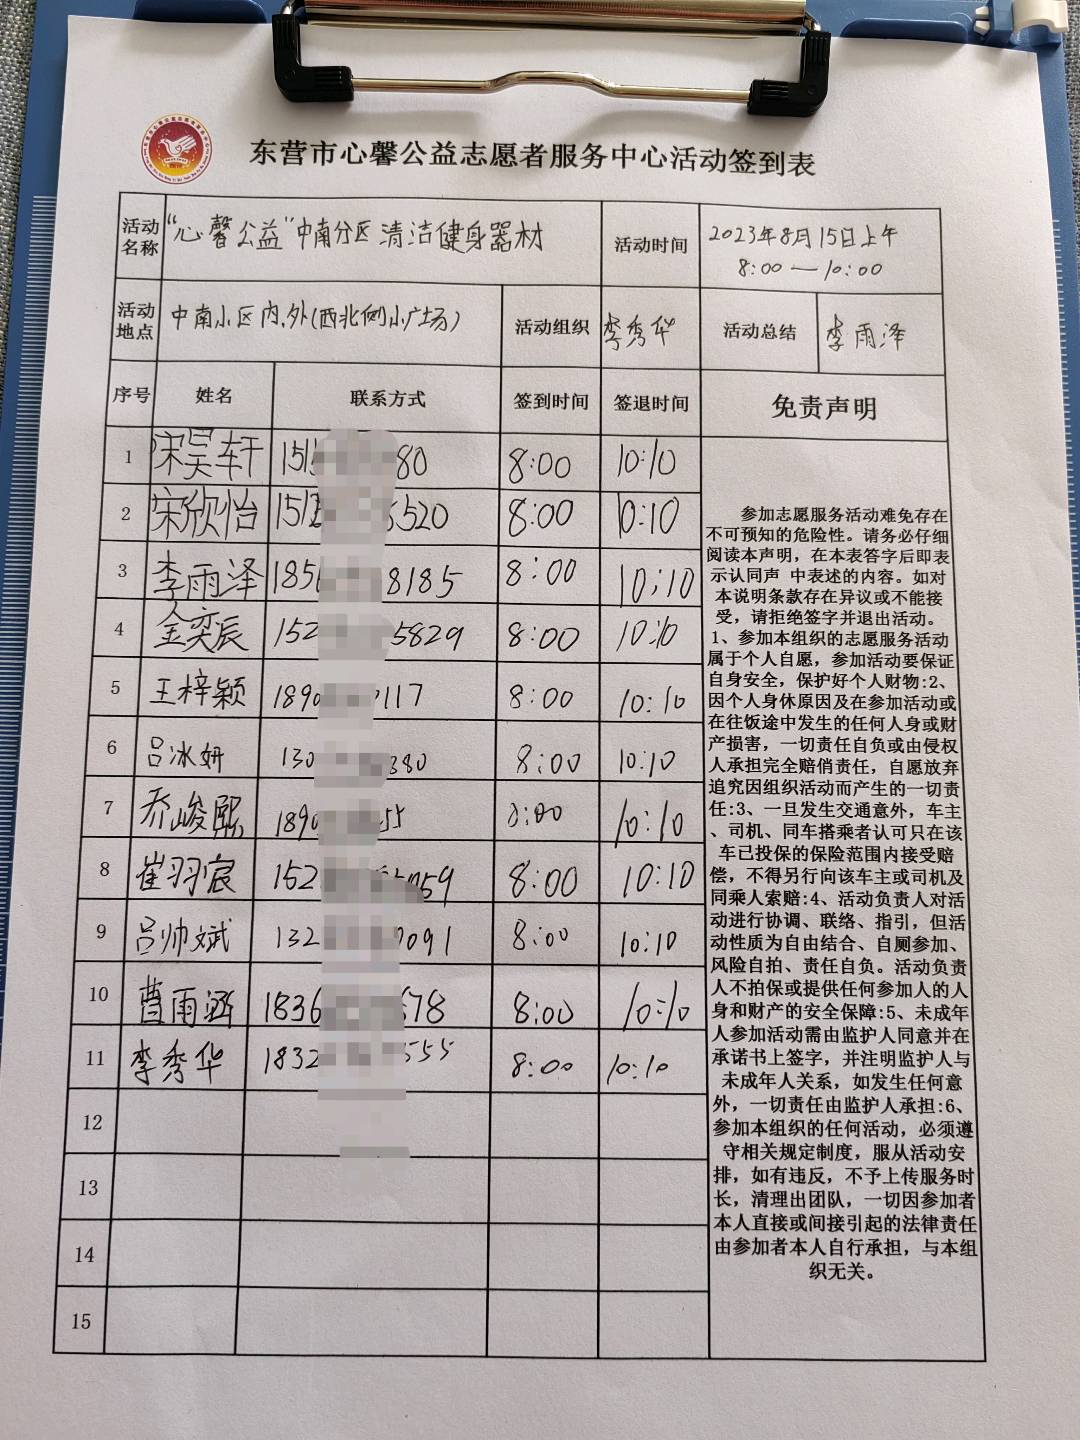 东营市心馨公益志愿者服务中心活动签到表
活动名称 “心馨公益”中南分区清洁健身器材 活动时间 2023年8月15日上午 8:00—10:00
活动地点 中南小区内、外(西北侧小广场) 活动组织 李秀华 活动总结 李雨泽
序号 姓名 联系方式 签到时间 签退时间 免责声明
1 宋昊轩 151 80 8:00 10:10
2 宋欣怡 151 520 8:00 10:10
3 李雨泽 185 8185 8:00 10:10
4 金奕辰 152 5829 8:00 10:10
5 王梓颖 1890 117 8:00 10:10
6 吕冰妍 130 380 8:00 10:10
7 乔峻熙 1890 55 8:00 10:10
8 崔羽宸 152 59 8:00 10:10
9 吕帅斌 132 091 8:00 10:10
10 曹雨涵 1836 78 8:00 10:10
11 李秀华 1832 555 8:00 10:10
12
13
14
15
参加志愿服务活动难免存在
不可预知的危险性。请务必仔细
阅读本声明，在本表答字后即表
示认同声 中表述的内容。如对
本说明条款存在异议或不能接
受，请拒绝签字并退出活动。
1、参加本组织的志愿服务活动
属于个人自愿，参加活动要保证
自身安全，保护好个人财物:2、
因个人身休原因及在参加活动或
在往饭途中发生的任何人身或财
产损害，一切责任自负或由侵权
人承担完全赔俏责任，自愿放弃
追究因组织活动而产生的一切责
任:3、一旦发生交通意外，车主
、司机、同车搭乘者认可只在该
车已投保的保险范围内接受赔
偿，不得另行向该车主或司机及
同乘人索赔:4、活动负责人对活
动进行协调、联络、指引，但活
动性质为自由结合、自厕参加、
风险自拍、责任自负。活动负责
人不拍保或提供任何参加人的人
身和财产的安全保障:5、未成年
人参加活动需由监护人同意并在
承诺书上签字，并注明监护人与
未成年人关系，如发生任何意
外，一切责任由监护人承担:6、
参加本组织的任何活动，必须遵
守相关规定制度，服从活动安
排，如有违反，不予上传服务时
长，清理出团队，一切因参加者
本人直接或间接引起的法律责任
由参加者本人自行承担，与本组
织无关。